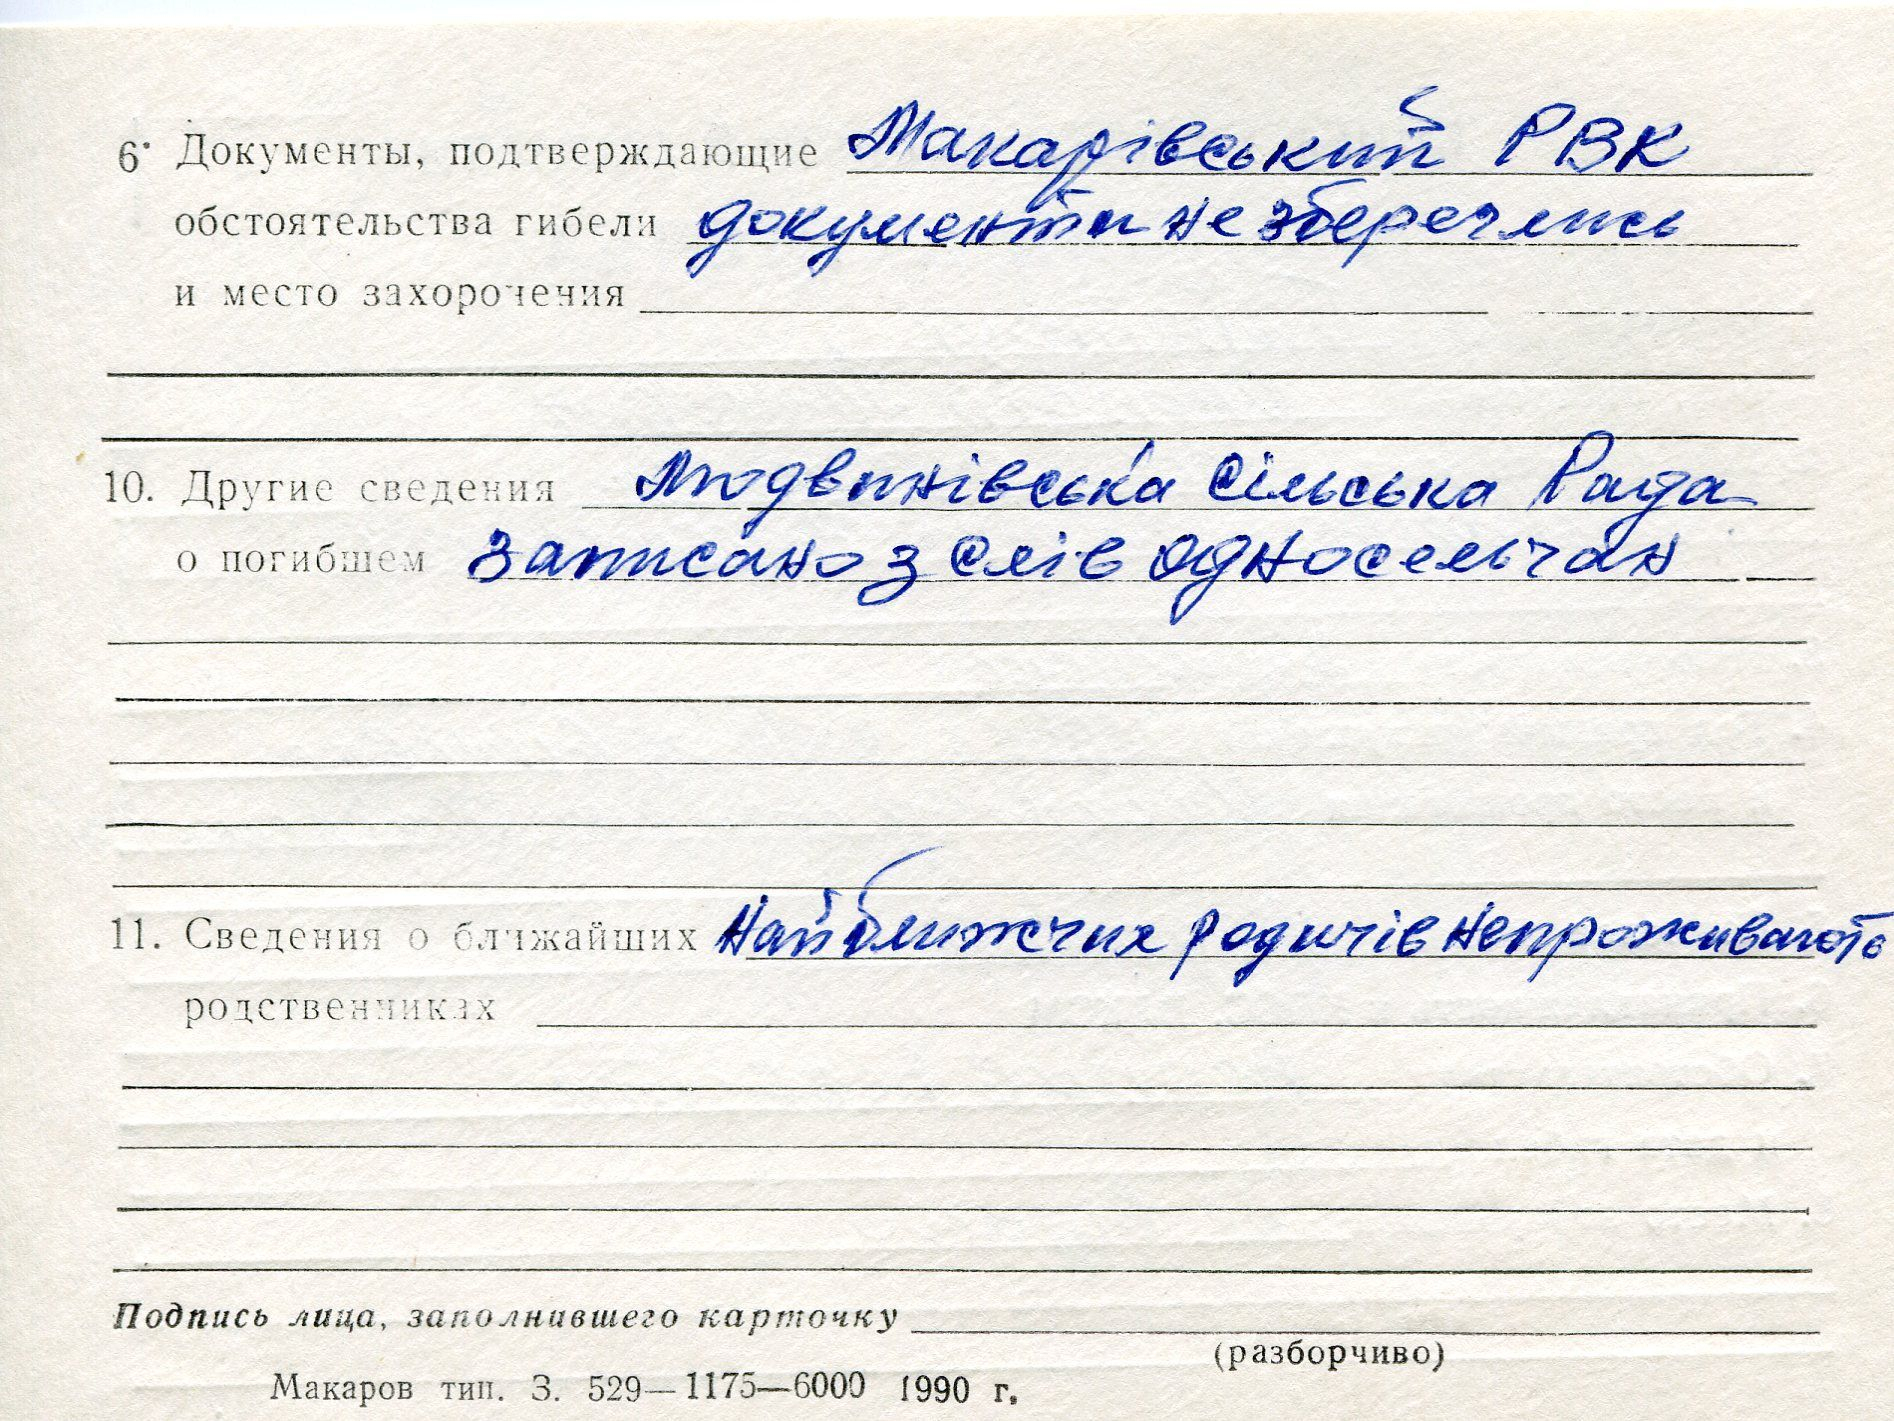 6. Документы, подтверждающие Макарівський РВК
обстоятельства гибели документи не збереглись
и место захоронения
10. Другие сведения Людвинівська сільська Рада
о погибшем Записано з слів односельчан
11. Сведения о ближайших Найближчих родичів непроживають
родственниках
Подпись лица, заполнившего карточку
(разборчиво)
Макаров тип. З. 529—1175—6000 1990 г.